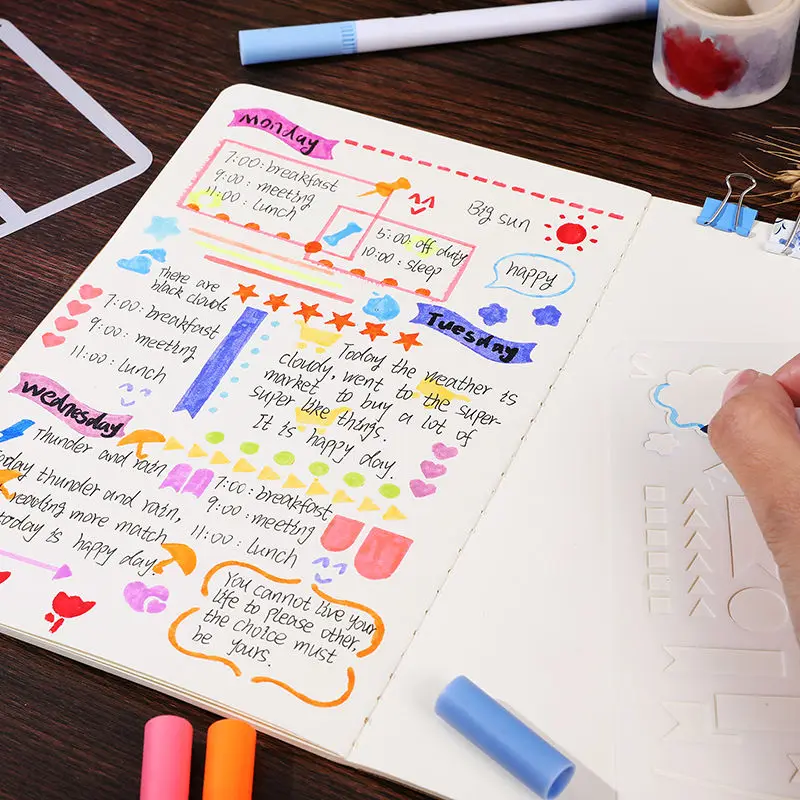 Monday
7:00: breakfast
9:00: meeting
11:00: lunch
5:00: off duty
10:00: sleep
Big sun
happy
There are
black clouds
7:00: breakfast
9:00: meeting
11:00: lunch
Tuesday
Today the weather is
cloudy, went to the super-
market to buy a lot of
super like things.
It is happy day.
Wednesday
Thunder and rain
Today thunder and rain,
reading more match
today is happy day.
7:00: breakfast
9:00: meeting
11:00: lunch
You cannot live your
life to please other,
the choice must
be yours.